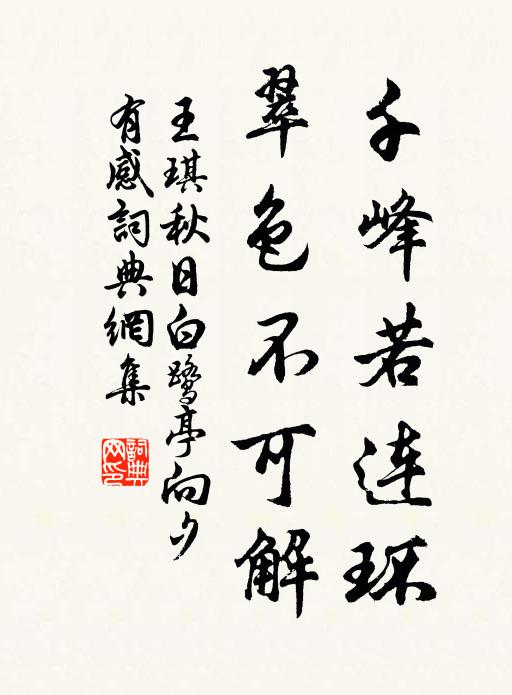 千峰若連环
翠色不可解
王琪秋日白鷺亭向夕
有感詞典網集
詞典網印